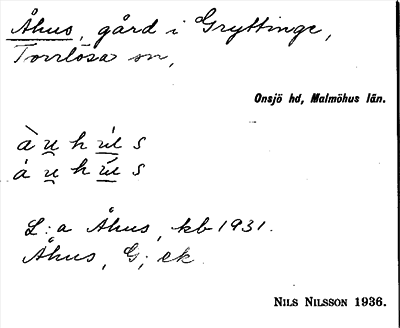 Åhus, gård i Gryttinge,
Torrlösa sn,
Onsjö hd, Malmöhus län.
L:a Åhus, kb 1931.
Åhus, G; ek.
Nils Nilsson 1936.